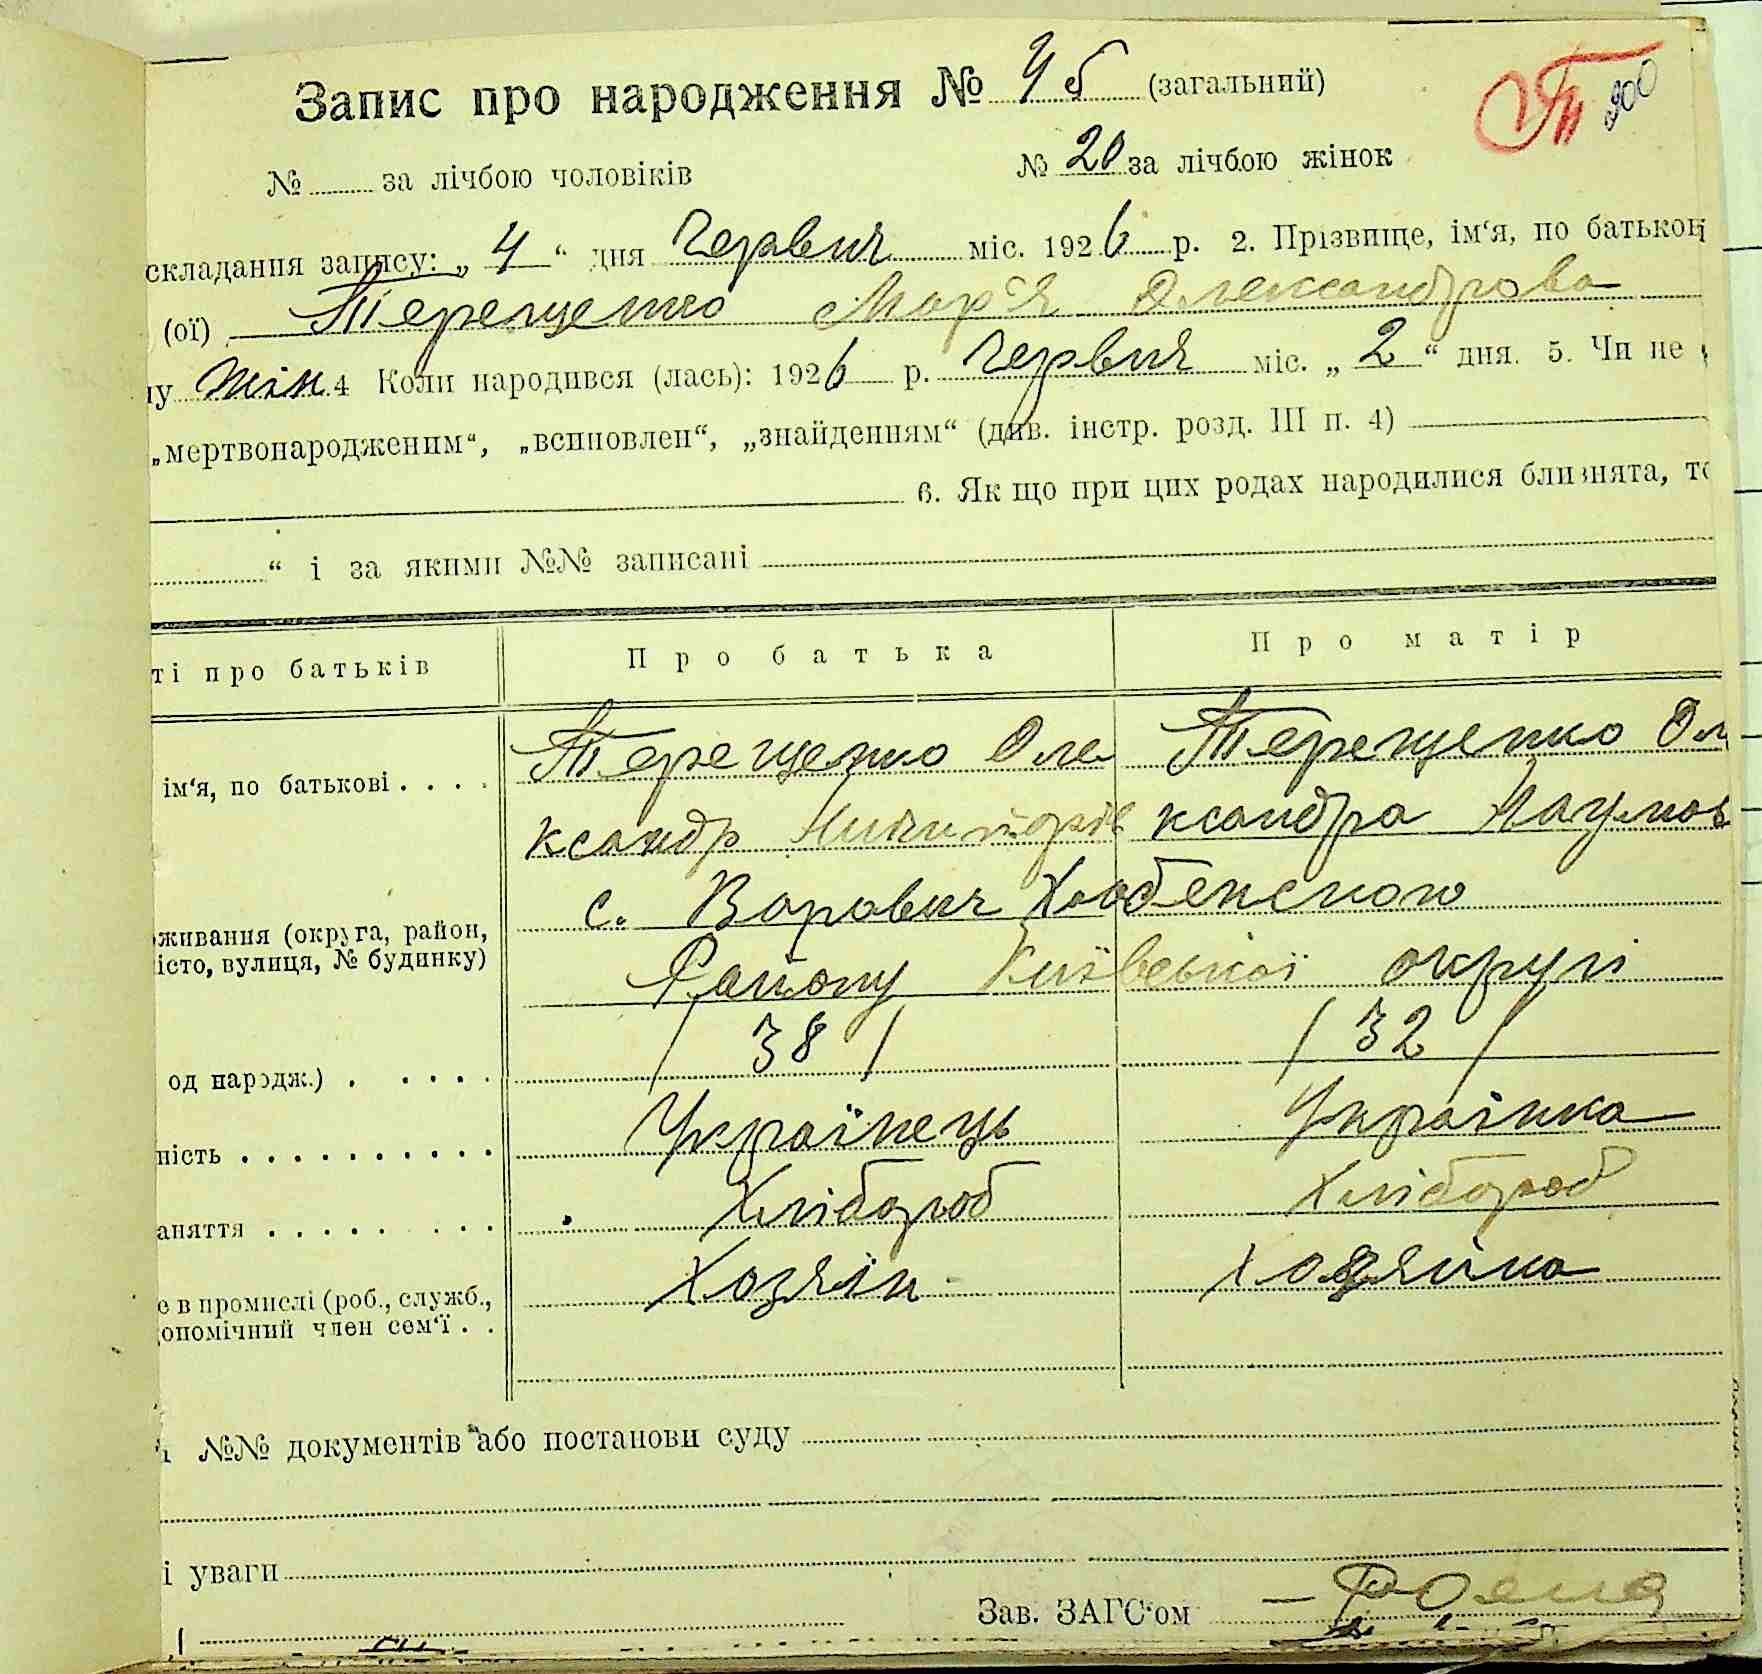 Запис про народження № 46 (загальний)
200
№ за лічбою чоловіків № 20 за лічбою жінок
складання запису: „ 4 “ дня Червня міс. 1926 р. 2. Прізвище, ім‘я, по батькові
(ої) Терещенко Мар‘я Олександрова
му жін. 4 Коли народився (лась): 1926 р. Червня міс. „ 2 “ дня. 5. Чи не
„мертвонародженим“, „всиновлен“, „знайденням“ (див. інстр. розд. III п. 4)
6. Як що при цих родах народилися близнята, то
“ і за якими №№ записані
ті про батьків Про батька Про матір
ім‘я, по батькові . . . . Терещенко Оле Терещенко Оле
ксандр Никифорів ксандра Наумов
с. Варовичі Хабенського
живання (округа, район, Району Київської округи
істо, вулиця, № будинку)
од народж.) . . . . . / 38 / / 32 /
ність . . . . . . . . . . Українець Українка
аняття . . . . . . . . Хлібороб Хлібороб
е в промислі (роб., служб., Хозяїн Хозяйка
опомічний член сем‘ї . .
№№ документів або постанови суду
і уваги
Зав. ЗАГС‘ом